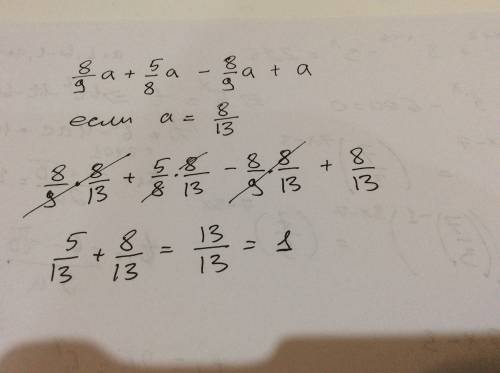 8/9 a + 5/8 a - 8/9 a + a
если a = 8/13
8/9 · 8/13 + 5/8 · 8/13 - 8/9 · 8/13 + 8/13
5/13 + 8/13 = 13/13 = 1